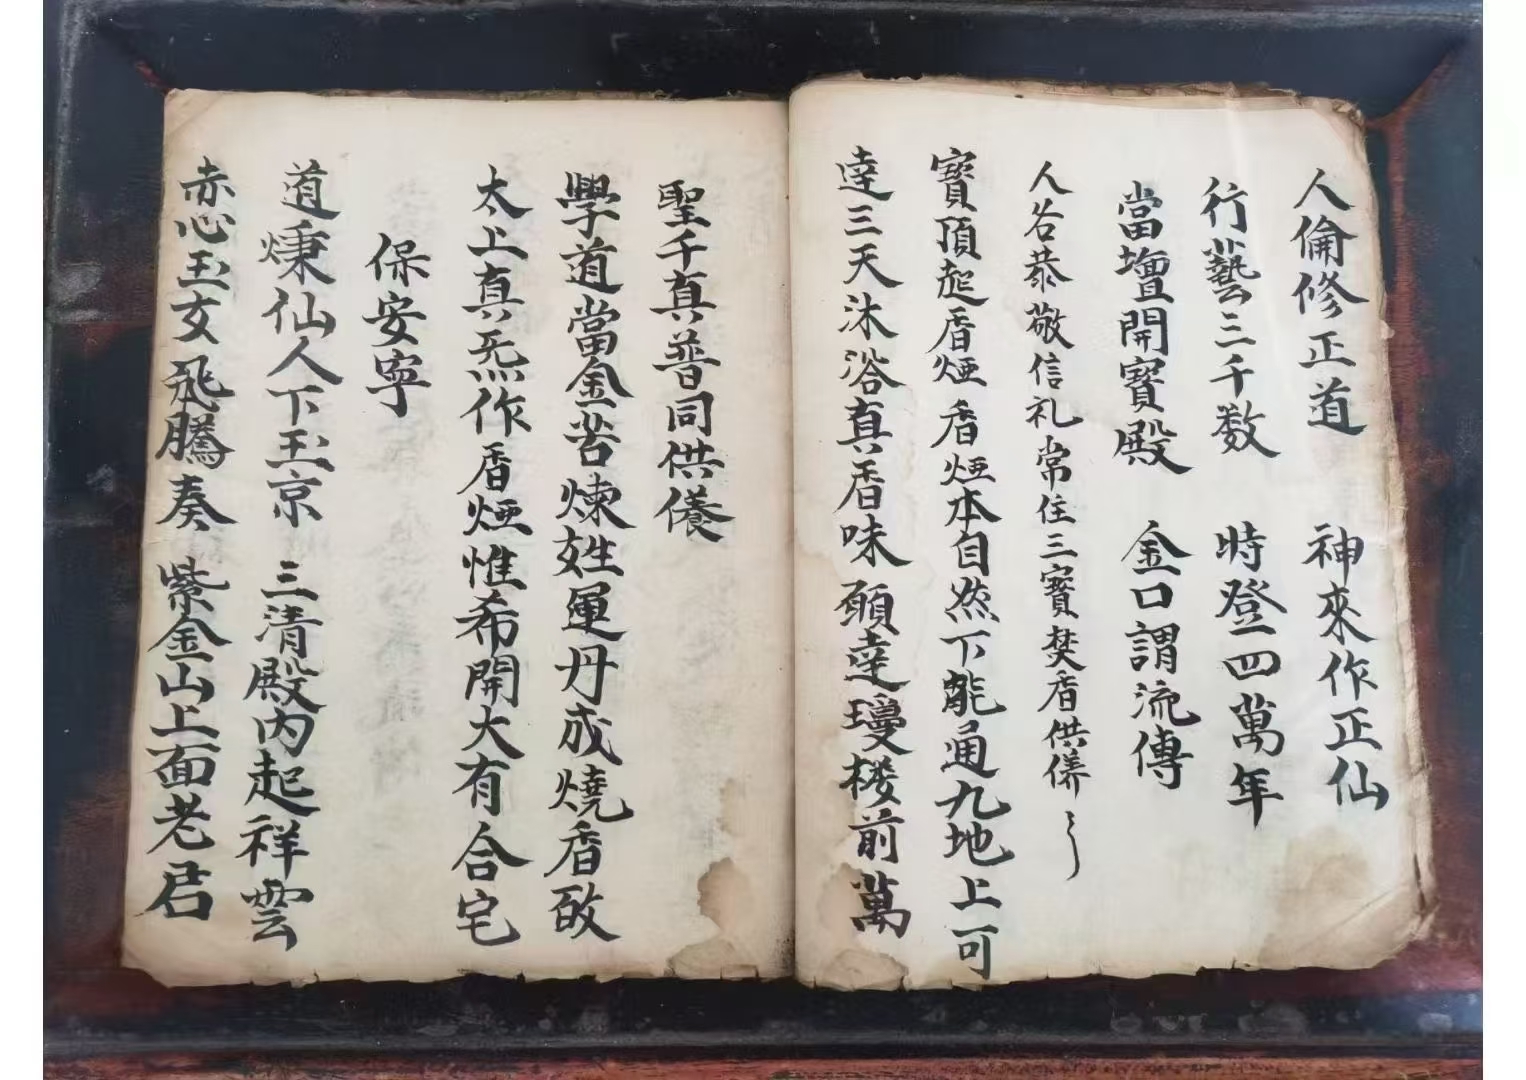 人倫修正道　神來作正仙
行藝三千数　時登四萬年
當壇開寶殿　金口謂流傳
人各恭敬信礼常住三寶焚香供養
寶頂起香烟香烟本自然下能通九地上可
達三天沐浴真香味願達瓊楼前萬
聖千真普同供養
學道當金苦煉姓運丹成燒香啟
太上真炁作香烟惟希開大有合宅
保安寧
道煉仙人下玉京　三清殿内起祥雲
赤心玉女飛騰奏　紫金山上面老君